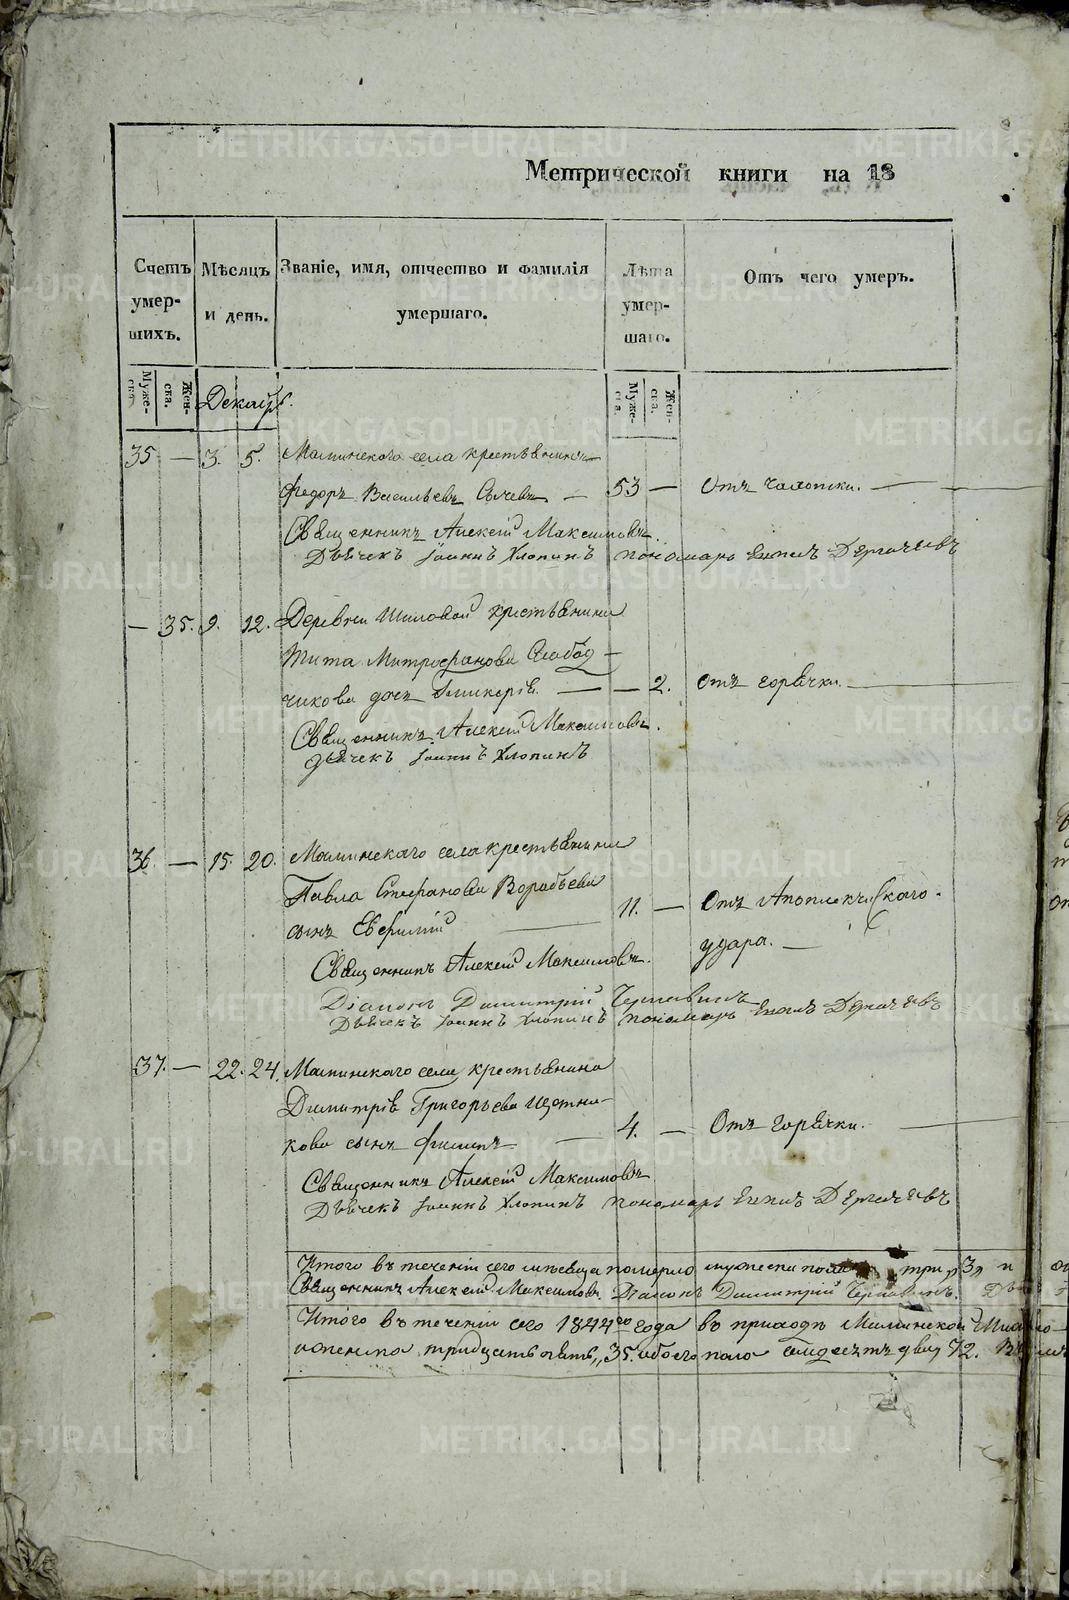 Метрической книги на 18
Счетъ умер-шихъ.
Мѣсяцъ и день.
Званіе, имя, отчество и фамилія умершаго.
Лѣта умер-шаго.
Отъ чего умеръ.
Муже-ска.
Жен-ска.
Декабр.
Муже-ска.
Жен-ска.
35 — 3. 5. Маминскаго села крестьянинъ
Федоръ Васильевъ Сычевъ — 53 — Отъ чахотки. —
Священникъ Алексій Максимовъ.
Дьячекъ Іоаннъ Хлопинъ пономарь Дергачевъ
— 35. 9. 12. Деревни Шиловой крестьянина
Тита Митрофанова Слобод-
чикова дочь — — 2. Отъ горячки. —
Священникъ Алексій Максимовъ.
Дьячекъ Іоаннъ Хлопинъ
36. — 15. 20. Маминскаго села крестьянина
Павла Стефанова Воробьева
сынъ — 11. — Отъ Апоплексическаго
удара. —
Священникъ Алексій Максимовъ.
Діаконъ Димитрій
Дьячекъ Іоаннъ Хлопинъ пономарь Дергачевъ
37. — 22. 24. Маминскаго села крестьянина
Димитрія Григорьева
кова сынъ Филиппъ — 4. — Отъ горячки. —
Священникъ Алексій Максимовъ
Дьячекъ Іоаннъ Хлопинъ пономарь Дергачевъ
Итого въ теченіи сего мѣсяца померло мужеска пола три „3„ и
Священникъ Алексій Максимовъ. Діаконъ Димитрій
Итого въ теченіи сего 1844го года въ приходѣ Маминской
женска тридцать пять „35. обоего пола семдесятъ два 72.
METRIKI.GASO-URAL.RU